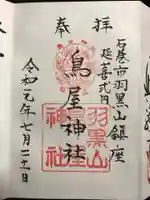 石巻市羽黒山鎮座
延喜式内
奉拝
鳥屋神社
羽黒山
神社
令和元年七月二十一日